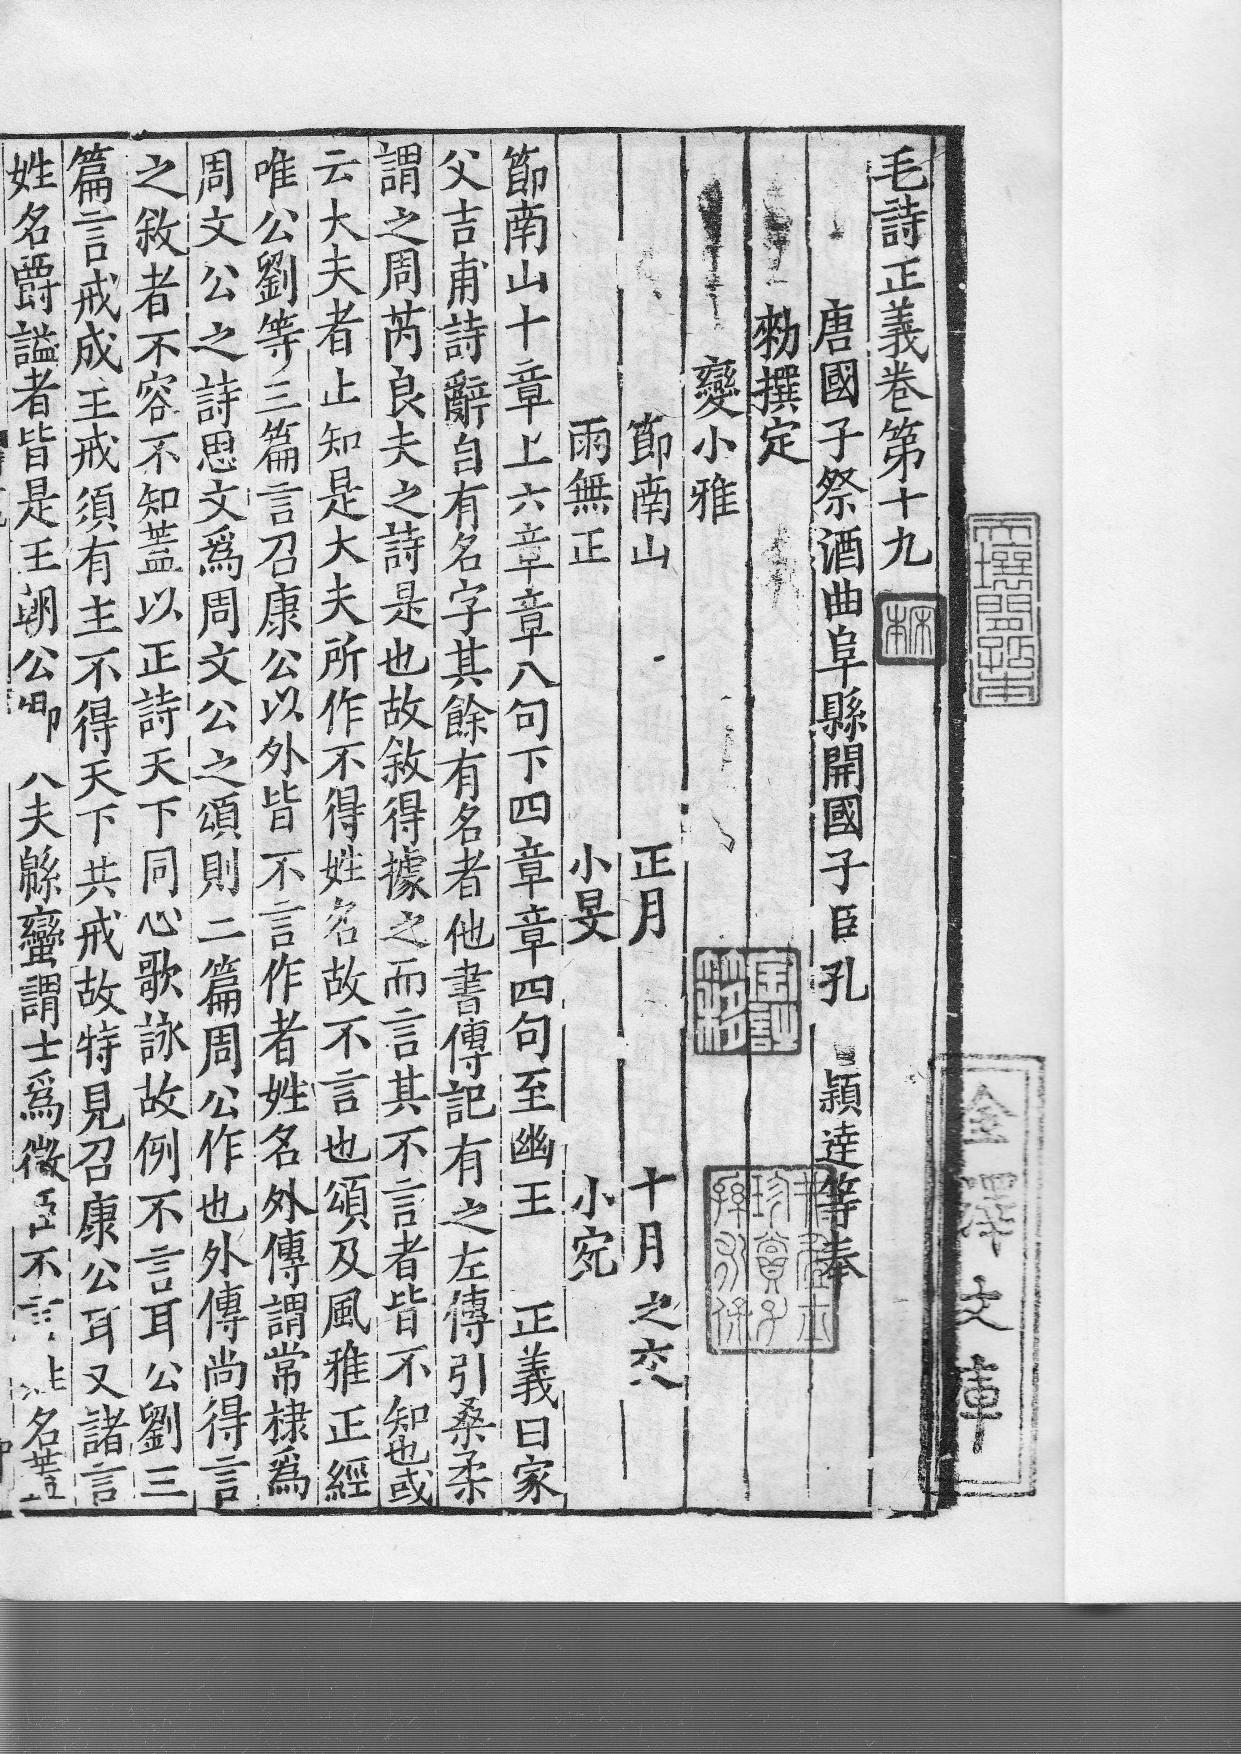 毛詩正義卷第十九
唐國子祭酒曲阜縣開國子臣孔穎達等奉
勑撰定
變小雅
節南山 正月 十月之交
雨無正 小旻 小宛
節南山十章上六章章八句下四章章四句至幽王 正義曰家
父吉甫詩辭自有名字其餘有名者他書傳記有之左傳引桑柔
謂之周芮良夫之詩是也故敘得據之而言其不言者皆不知也或
云大夫者止知是大夫所作不得姓名故不言也頌及風雅正經
唯公劉等三篇言召康公以外皆不言作者姓名外傳謂常棣爲
周文公之詩思文爲周文公之頌則二篇周公作也外傳尚得言
之敘者不容不知蓋以正詩天下同心歌詠故例不言耳公劉三
篇言戒成王戒須有主不得天下共戒故特見召康公耳又諸言
姓名爵謚者皆是王朝公卿大夫緜蠻謂士爲微臣不言姓名蓋
金澤文庫